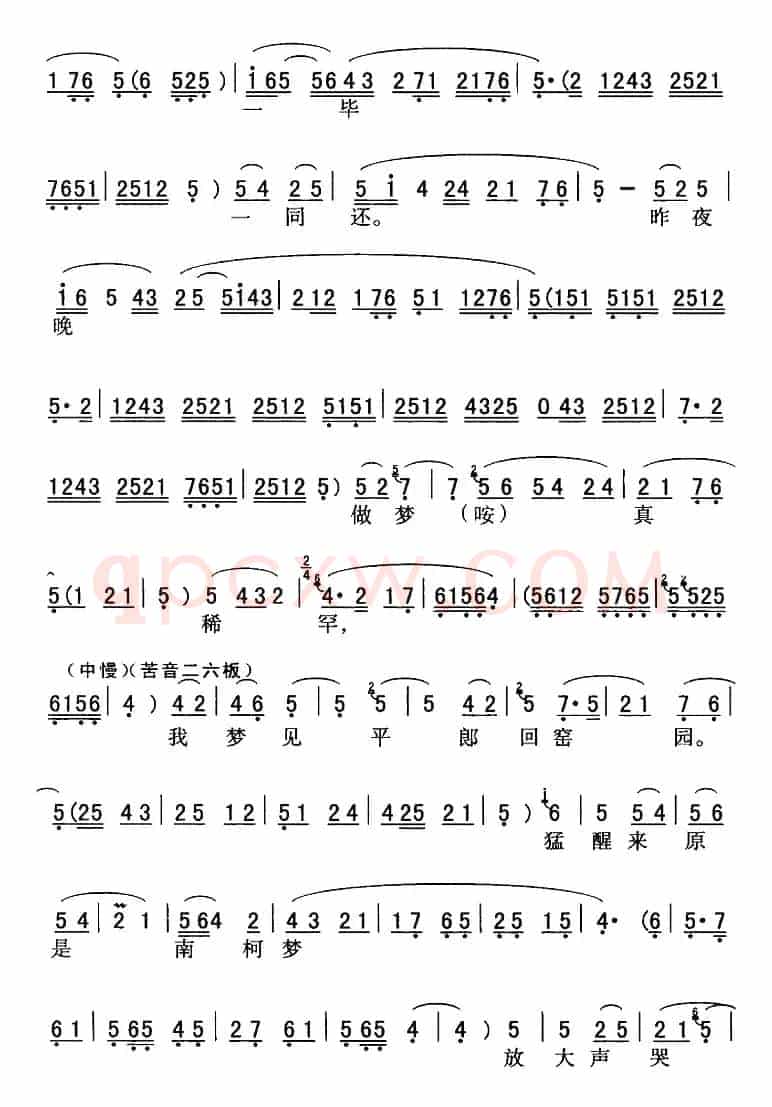 176 5(6 525)|i65 5643 271 2176|5·(2 1243 2521
一 毕
7651|2512 5)54 25|5 i 4 24 21 76|5 — 525|
一同 还。 昨夜
i6 5 43 25 5i43|212 176 51 1276|5(151 5151 2512
晚
5·2|1243 2521 2512 5151|2512 4325 043 2512|7·2
1243 2521 7651|2512 5)52 5 7|7 2 56 54 24|21 76
做 梦 (咹) 真
5(1 21|5)5 432|2/4 6 4·2 17|61564|(5612 5765|2 5 7 525
稀 罕,
(中慢)(苦音二六板)
6156|4)42|46 5|5 2 5|5 42|2 5 7·5|21 76|
我 梦 见 平 郎 回 窑 园。
5(25 43|25 12|51 24|425 21|5)i 6|5 54|56
猛 醒 来 原
54|2 1|564 2|43 21|17 65|25 15|4· (6|5·7
是 南 柯 梦
61|565 45|27 61|565 4|4)5|5 25|21 6 5|
放 大 声 哭
qpcxw.COM